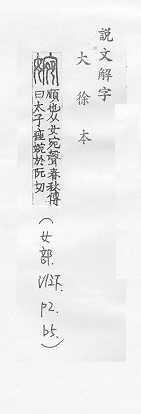 說文解字
大徐本
婉
順也从女宛聲春秋傳
曰太子痤婉於阮切
(女部. V12下. p2. b5.)